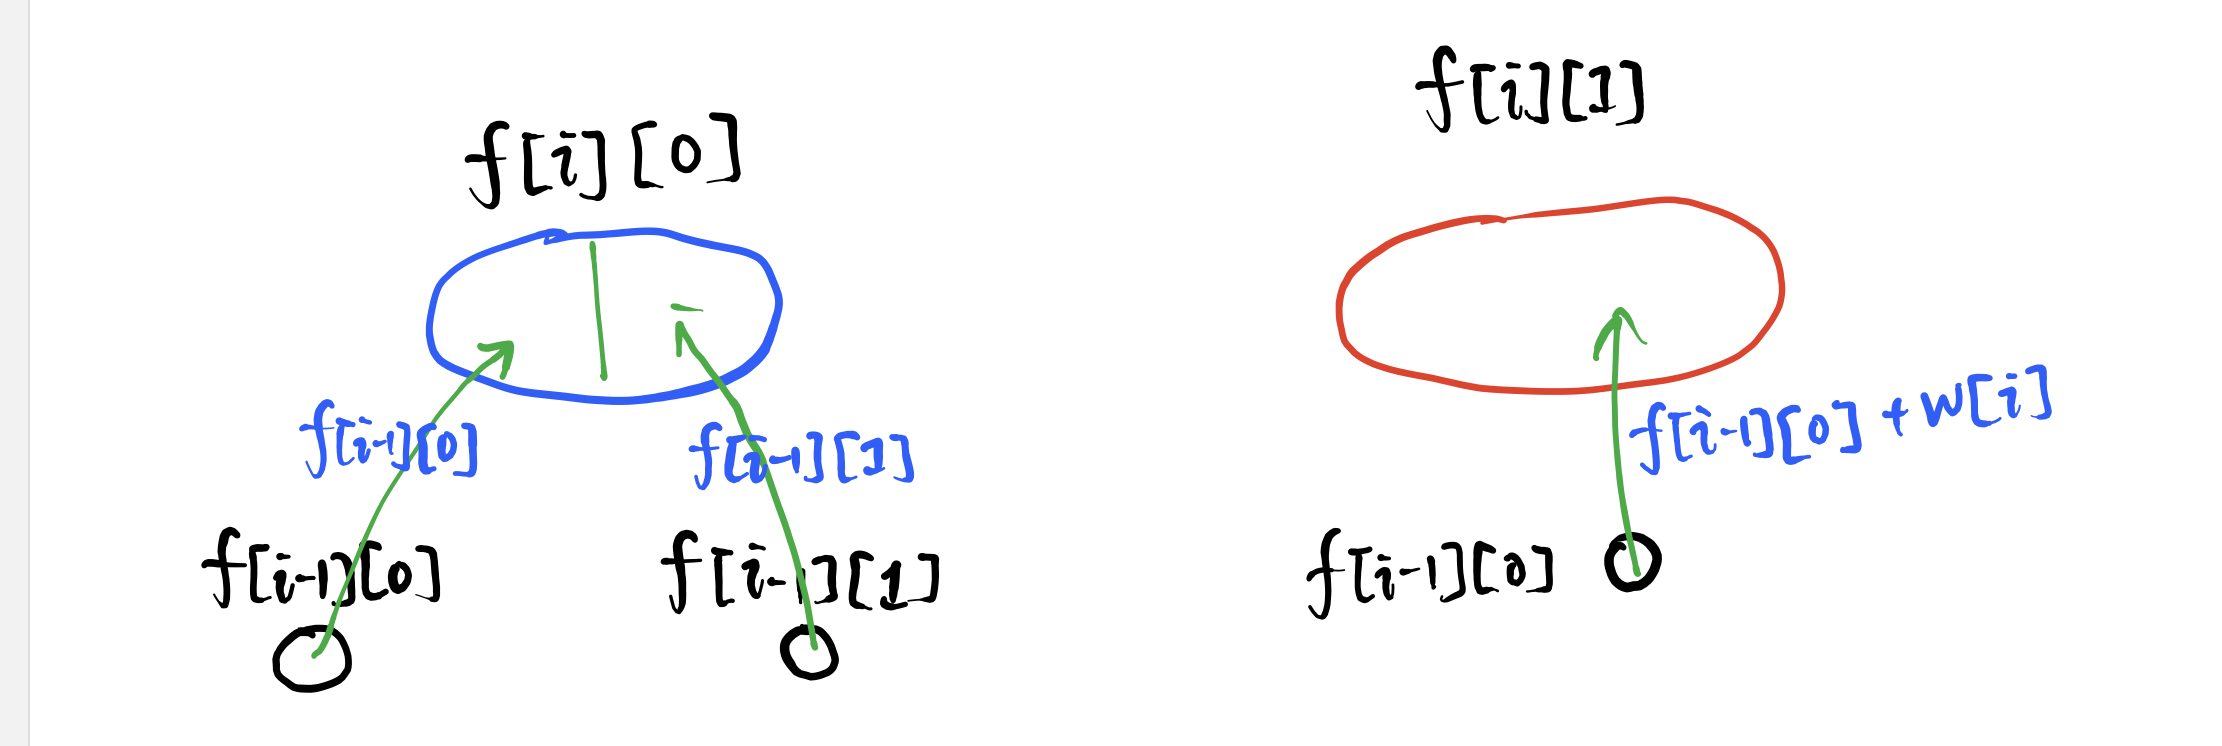 f[i][0]
f[i-1][0]
f[i-1][1]
f[i-1][0]
f[i-1][1]
f[i][1]
f[i-1][0] + w[i]
f[i-1][0]